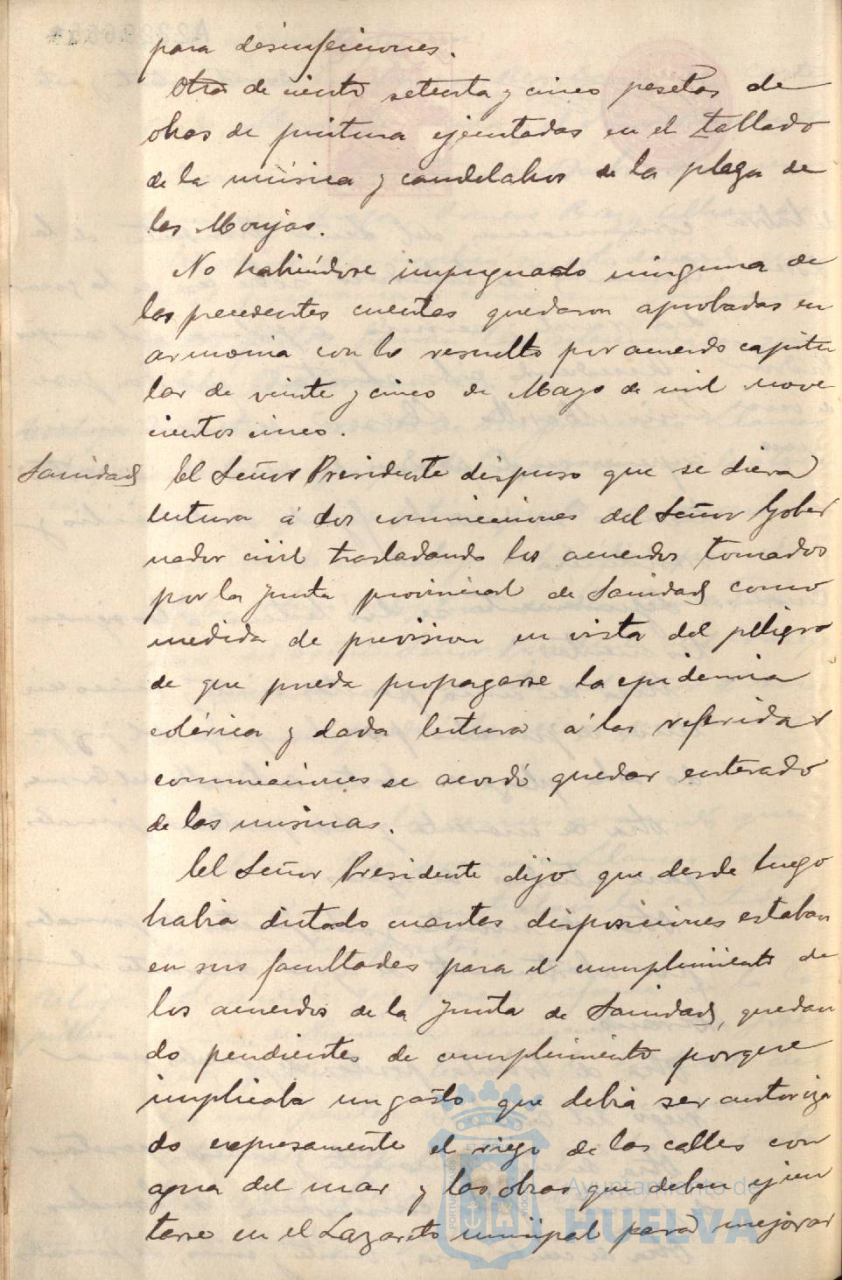 para desinfeciones.
Otra de ciento setenta y cinco pesetas de
obras de pintura ejecutadas en el tablado
de la música y candelabros de la plaza de
las Monjas.
No habiéndose impugnado ninguna de
las precedentes cuentas quedaron aprobadas en
armonia con lo resuelto por acuerdo capitu
lar de veinte y cinco de Mayo de mil nove
cientos cinco.
Sanidad El Señor Presidente dispuso que se diera
lectura á dos comunicaciones del Señor Gober
nador civil trasladando los acuerdos tomados
por la Junta provincial de Sanidad como
medida de prevision en vista del peligro
de que pueda propagarse la epidemia
colérica y dada lectura á las referidas
comunicaciones se acordó quedar enterado
de las mismas.
El Señor Presidente dijo que desde luego
habia dictado cuantas disposiciones estaban
en sus facultades para el cumplimiento de
los acuerdos de la Junta de Sanidad, quedan
do pendientes de cumplimiento porque
implicaba un gasto que debia ser autoriza
do expresamente el riego de las calles con
agua del mar y las obras que deben ejecu
tarse en el Lazareto municipal para mejorar
Ayuntamiento de
HUELVA